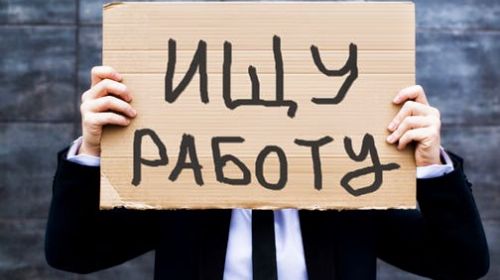 ИЩУ
РАБОТУ